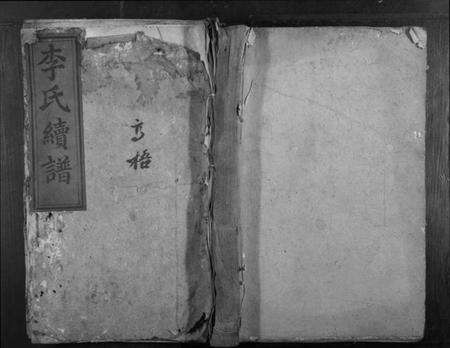 李氏續譜
高梧